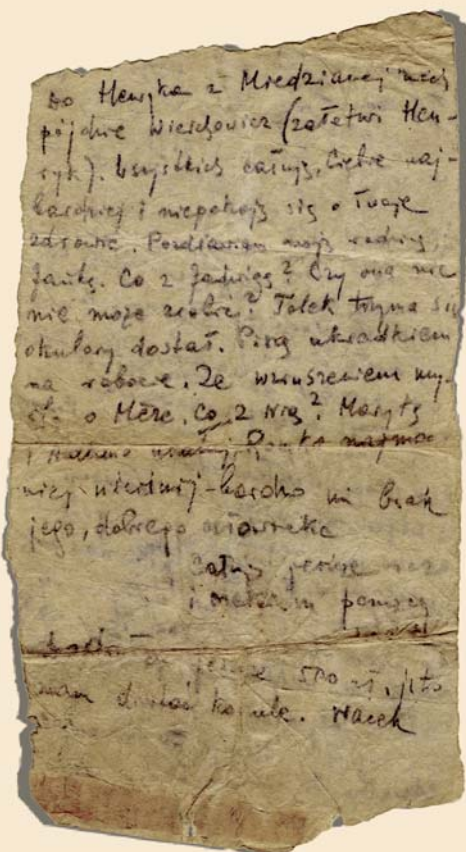 Do Henryka z Miedzianej niech
pójdzie Wierchowicz (załatwi Hen-
ryk). Wszystkich całuję, Ciebie naj-
bardziej i niepokoję się o Twoje
zdrowie. Pozdrawiam moją rodzinę,
Jankę. Co z Jadwigą? Czy ona nic
nie może zrobić? Tolek trzyma się
okulary dostał. Piszę ukradkiem
na robocie. Ze wzruszeniem my-
o Mérze. Co z Nią? Marytę
i najmoc
niej uściśnij - bardzo mi brak
jego, dobrego człowieka
Całuję jeszcze raz
i czekam pomocy
jeszcze 500 zł, 
mam dostać koszulę. Wacek